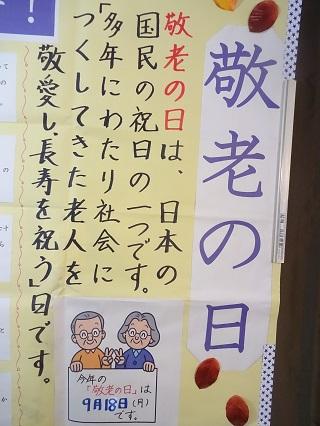 敬老の日
敬老の日は、日本の
国民の祝日の一つです。
「多年にわたり社会に
つくしてきた老人を
敬愛し、長寿を祝う」日です。
今年の
「敬老の日」は
9月18日(月)
です。